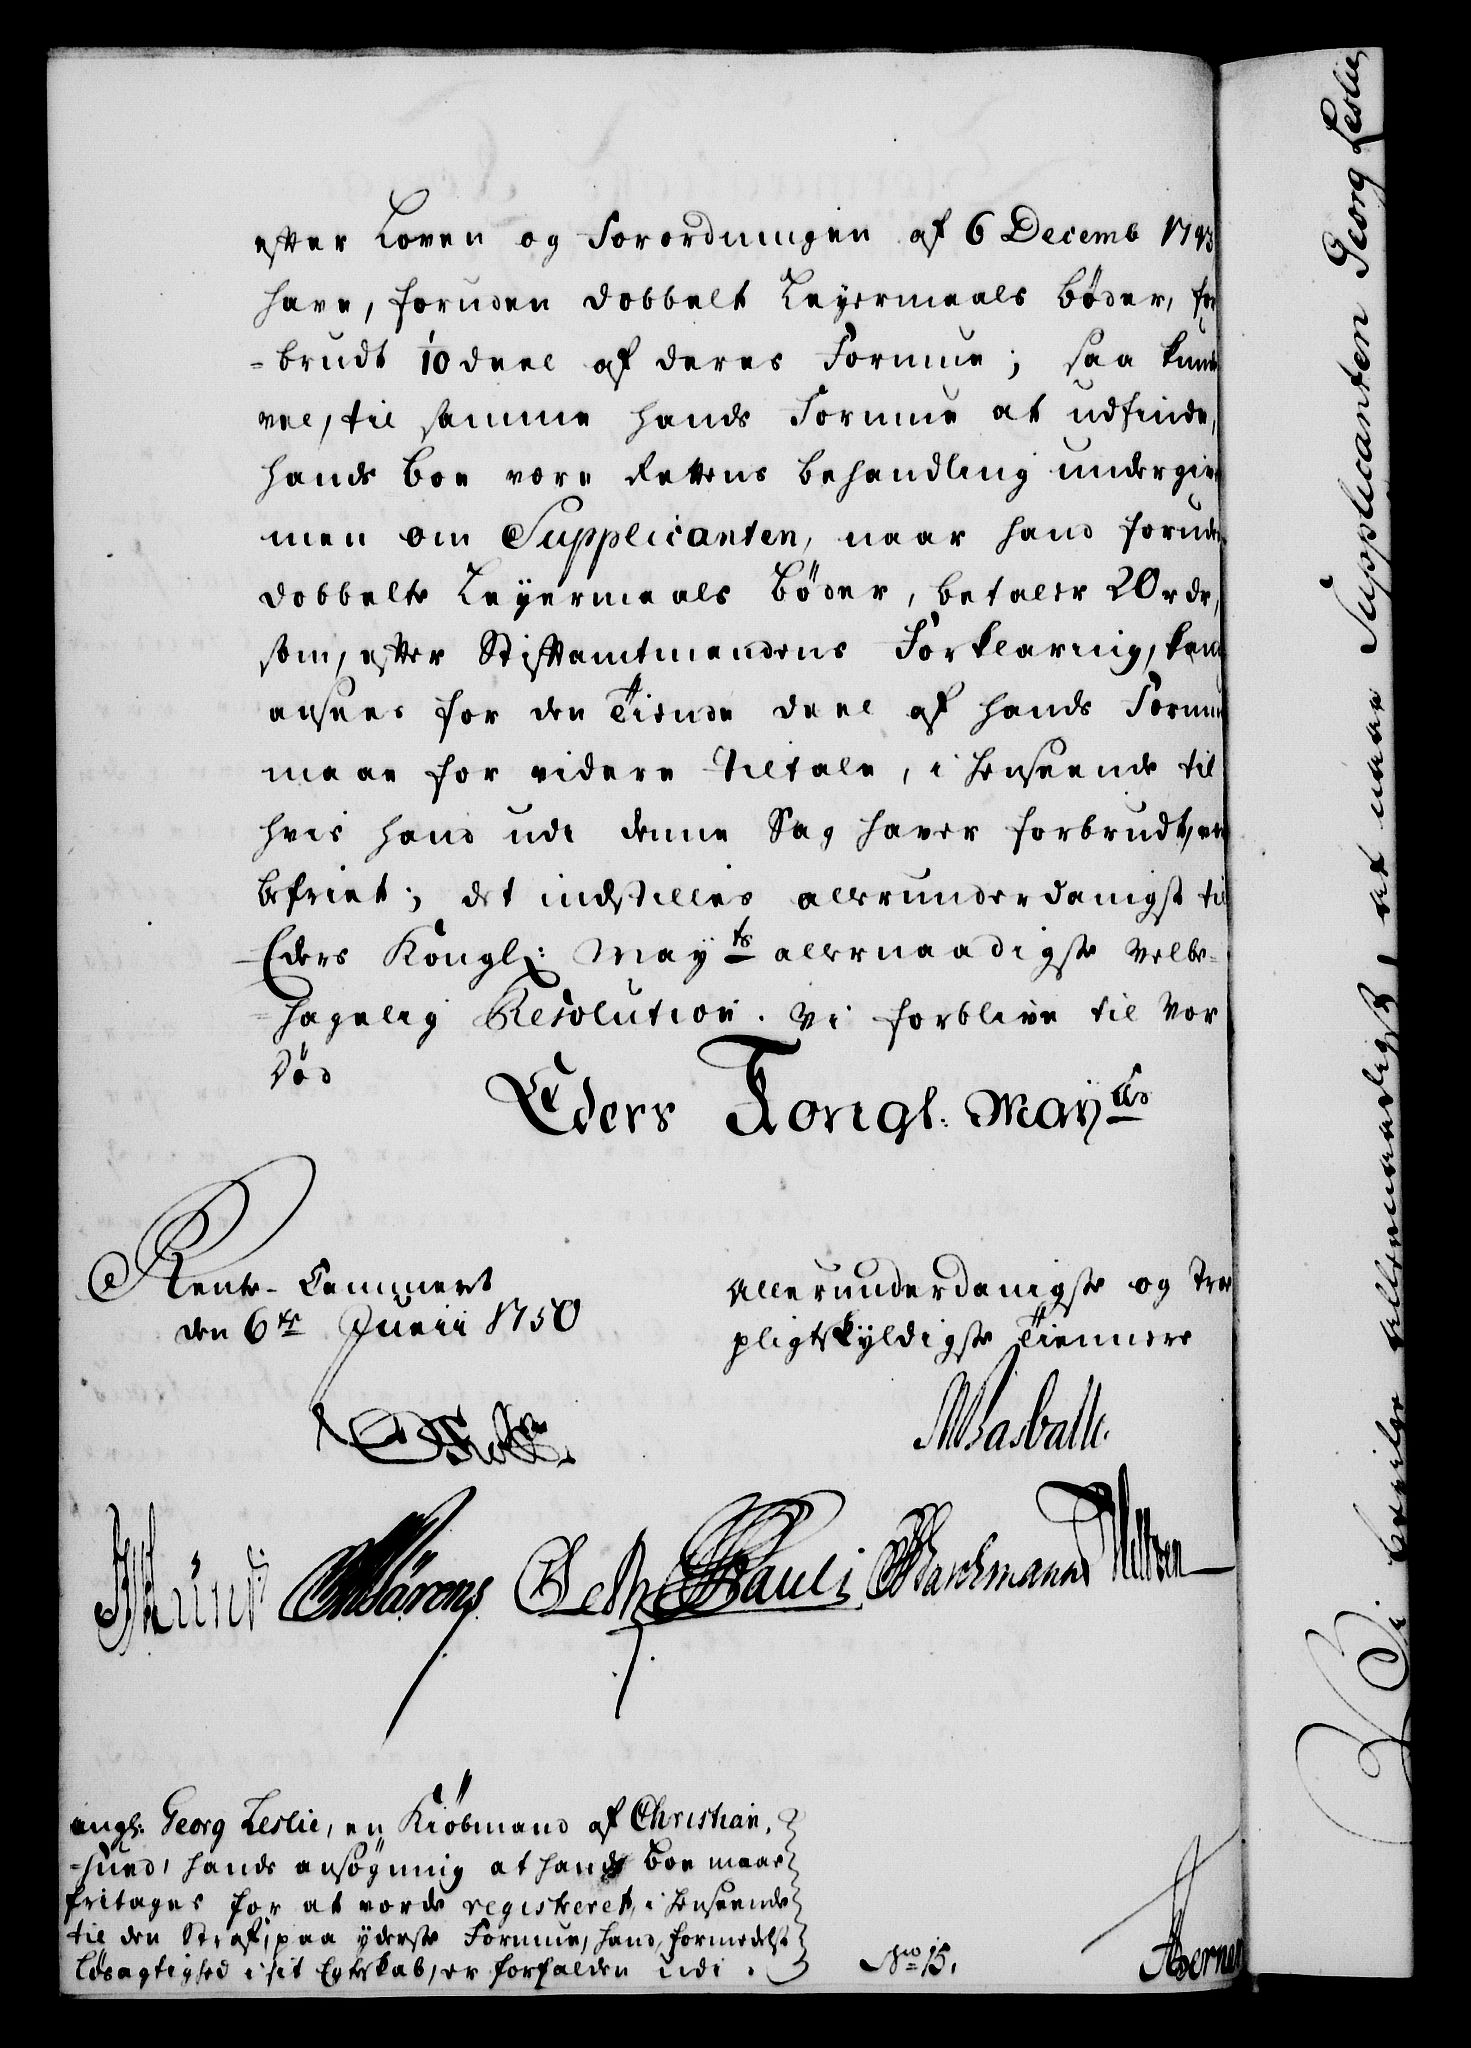 efter Loven og Forordningen af 6 Decemb 1743
have, foruden dobbelt Leyermaals Bøder, for
-brudt 1/10 deel af deres Formue; saa kunde
vel, til samme hands Formue at udfinde,
hands Boe være Rettens behandling undergiven
men om Supplicanten, naar hand foruden
dobbelte Leyermaals Bøder, betaler 20 rdr,
som, efter Stiftamtmandens Forklaring, kand
ansees for den Tiende deel af hands Formue
maae for videre tiltale, i henseende til
hvis hand udi denne Sag haver forbrudt, være
befriet; det indstilles allerunderdanigst til
Eders Kongl: May ts allernaadigste velbe-
-hagelig Resolution. Vi forblive til vor
Død
Eders Kongl. May ts
Rente-Cammeret
den 6te Junii 1750
Allerunderdanigste og Troe
pligtskyldigste Tiennere
Wasballe.
Lund Pauli Bartmann Nilsen
angl: Georg Leslie, en Kiøbmand af Christian,
-sund, hands ansøgning at hands Boe maae
fritages for at vorde registreret, i henseende
til den Straf, paa yderste Formue, hand, formedelst
Løsagtighed i sit Egteskab, er forfalden udi.
No 15.
Vi bevilge allernaadigst, at naar Supplicanten Georg Leslie,